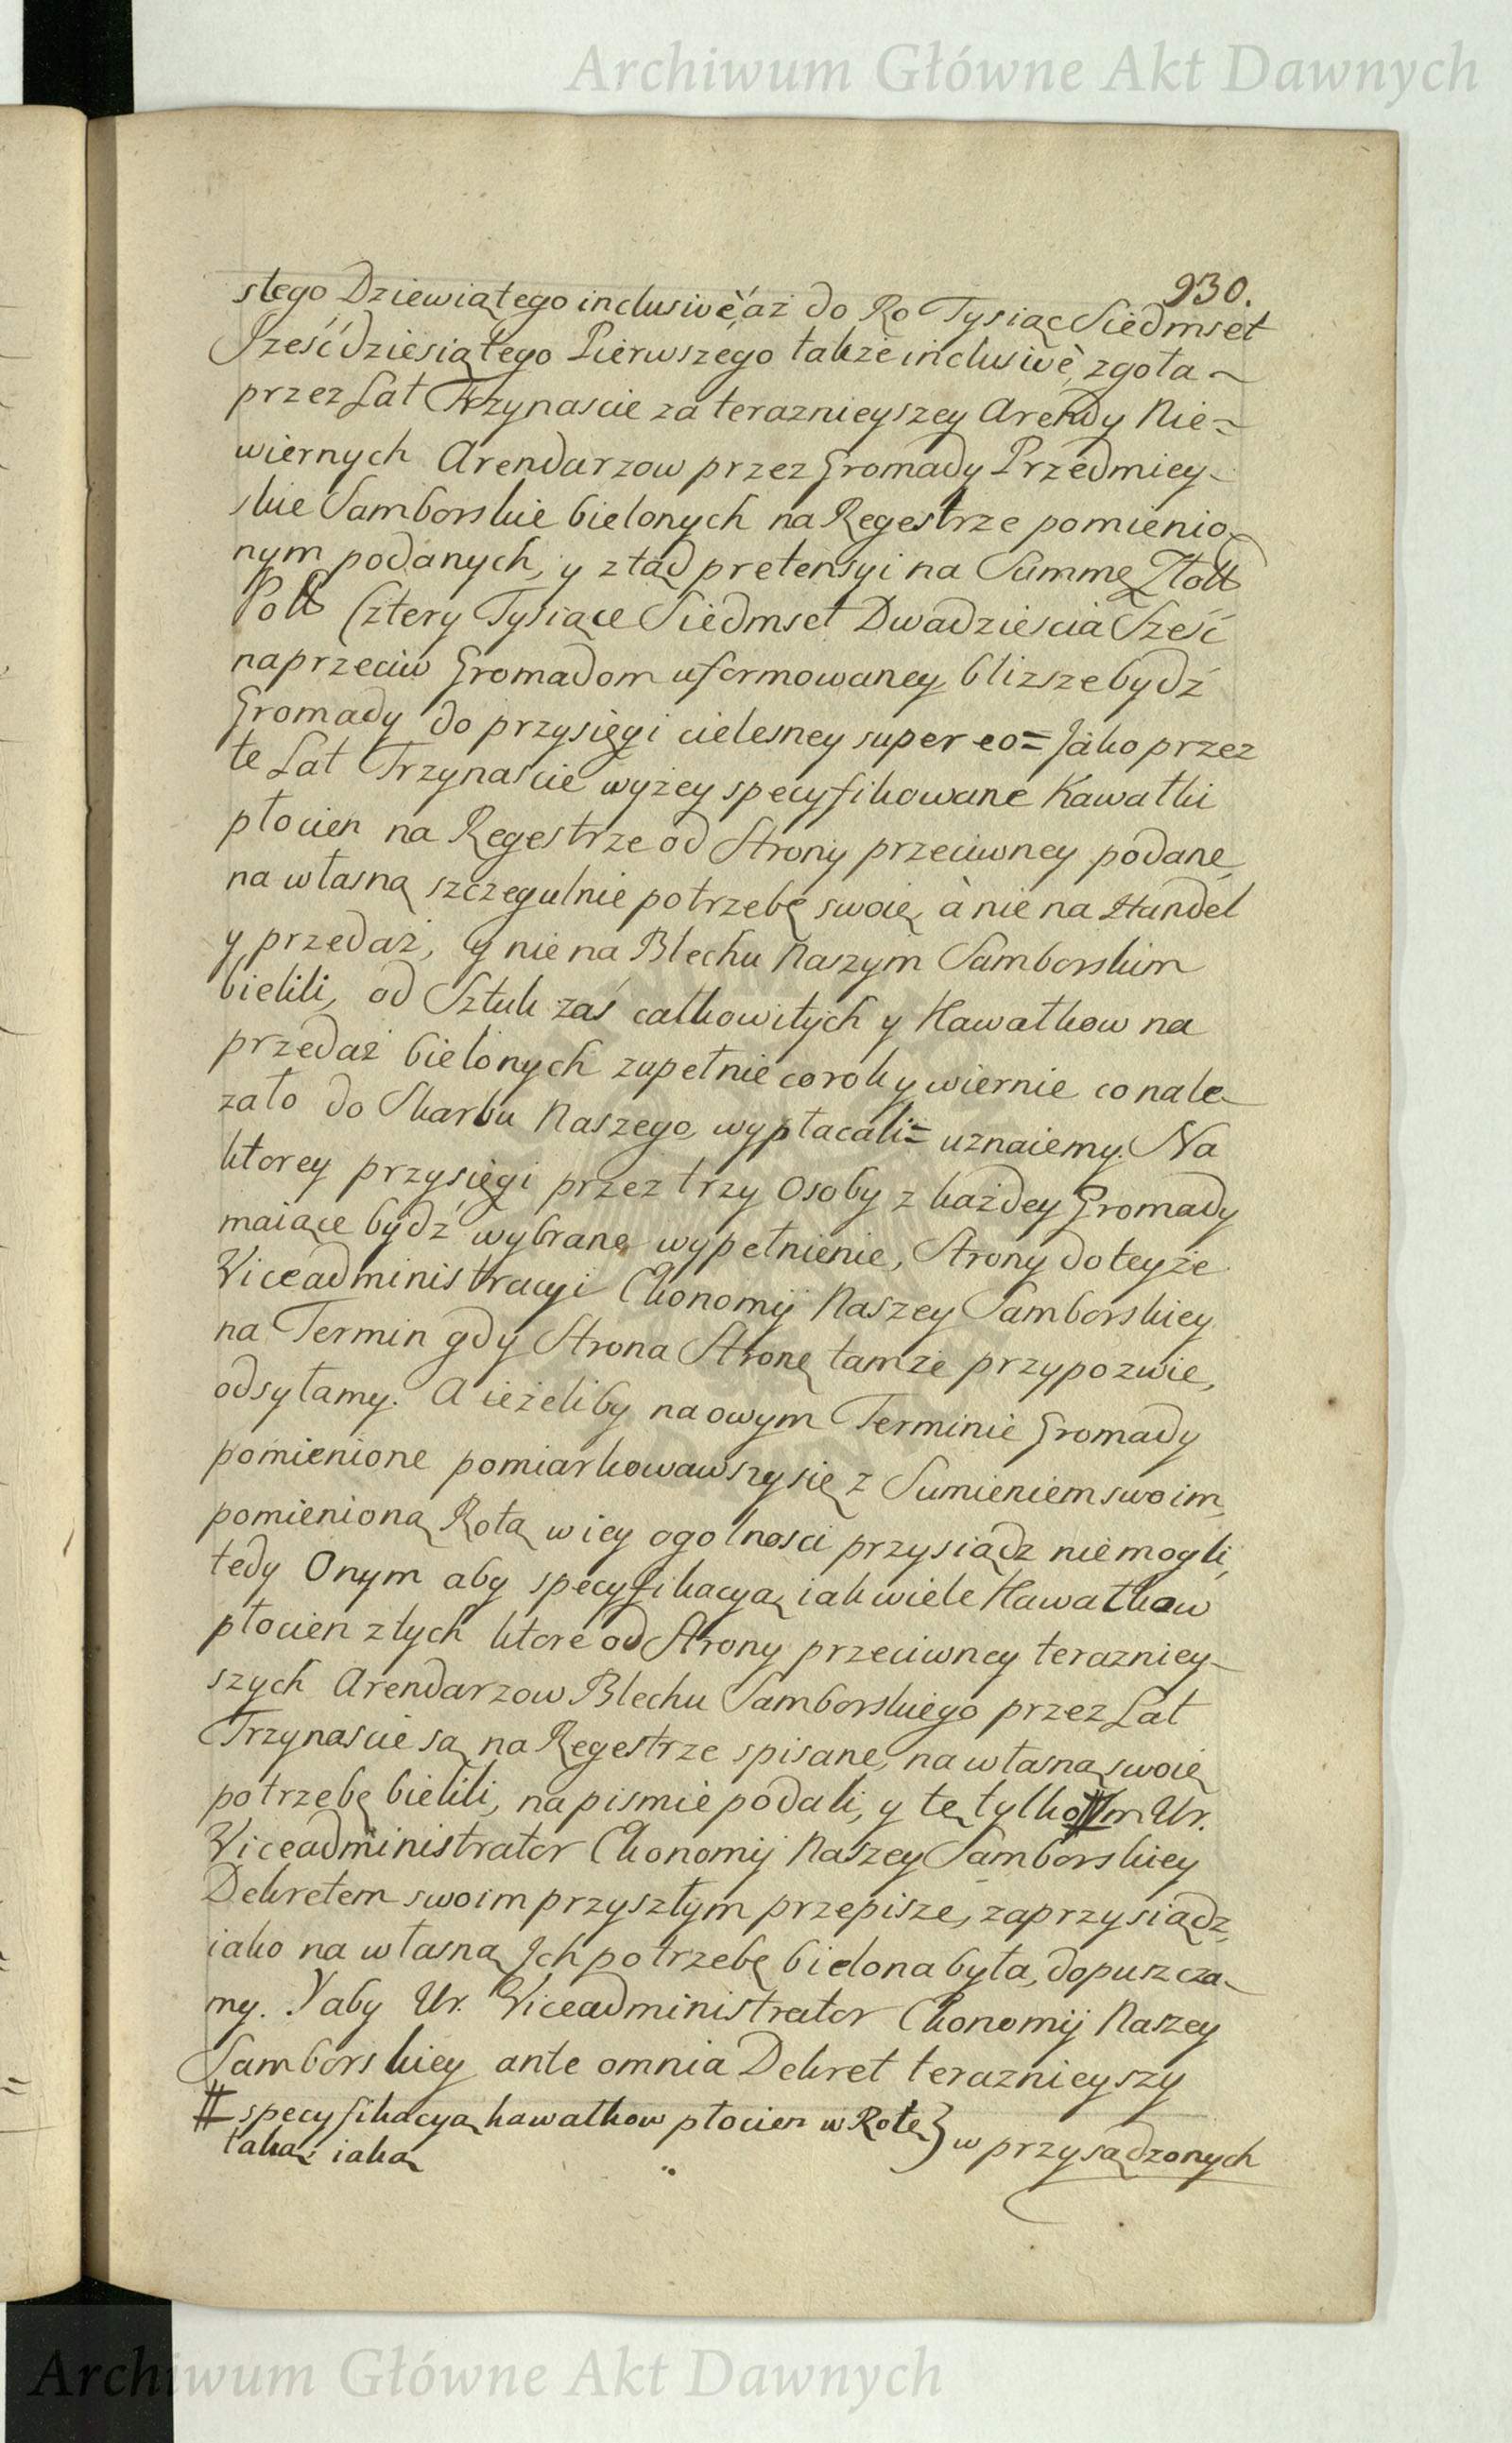 Archiwum Główne Akt Dawnych
930.
stego Dziewiątego inclusivè, aż do Ro Tysiąc Siedmset
Sześćdziesiątego Pierwszego także inclusivè, zgoła ~
przez Lat Trzynascie za teraznieyszey Arendy Nie=
wiernych Arendarzow przez Gromady Przedmiey-
skie Samborskie bielonych na Regestrze pomienio-
nym podanych, y ztąd pretensyi na Summę Złott
Poll Cztery Tysiące Siedmset Dwadziescia Sześć
naprzeciw Gromadom uformowaney, bliższe bydź
Gromady do przysięgi cielesney super eo = Jako przez
te Lat Trzynaście wyżey specyfikowane Kawałki
płocien na Regestrze od Strony przeciwney podane,
na własną szczegulnie potrzebę swoię, à nie na Handel
y przedaż, y nie na Blechu Naszym Samborskim
bielili, od Sztuk zaś całkowitych y Kawałkow na
przedaż bielonych zupełnie co rok y wiernie co nale-
żało do Skarbu Naszego, wypłacali = uznaiemy. Na
ktorey przysięgi przez trzy Osoby z każdey Gromady
maiące bydź wybrane wypełnienie, Strony do teyże
Viceadministracyi Ekonomij Naszey Samborskiey
na Termin gdy Strona Stronę tamże przypozwie,
odsyłamy. A ieżeliby na owym Terminie Gromady
pomienione pomiarkowawszy się z Sumieniem swoim,
pomienioną Rotą w iey ogolnosci przysiądz nie mogli,
tedy Onym aby specyfikacyą, iak wiele Kawałkow
płocien z tych ktore od Strony przeciwney teraźniey-
szych Arendarzow Blechu Samborskiego przez Lat
Trzynascie są na Regestrze spisane, na własną swoię
potrzebę bielili, na pismie podali, y tę tylko # Im Ur.
Viceadministrator Ekonomij Naszey Samborskiey
Dekretem swoim przyszłym przepisze, zaprzysiądz,
iako na własną Ich potrzebę bielona była, dopuszcza-
my. Y aby Ur. Viceadministrator Ekonomij Naszey
Samborskiey ante omnia Dekret teraznieyszy
# specyfikacyą kawałkow płocien w Rotę } w przysądzonych
taką, iaką
Archiwum Główne Akt Dawnych